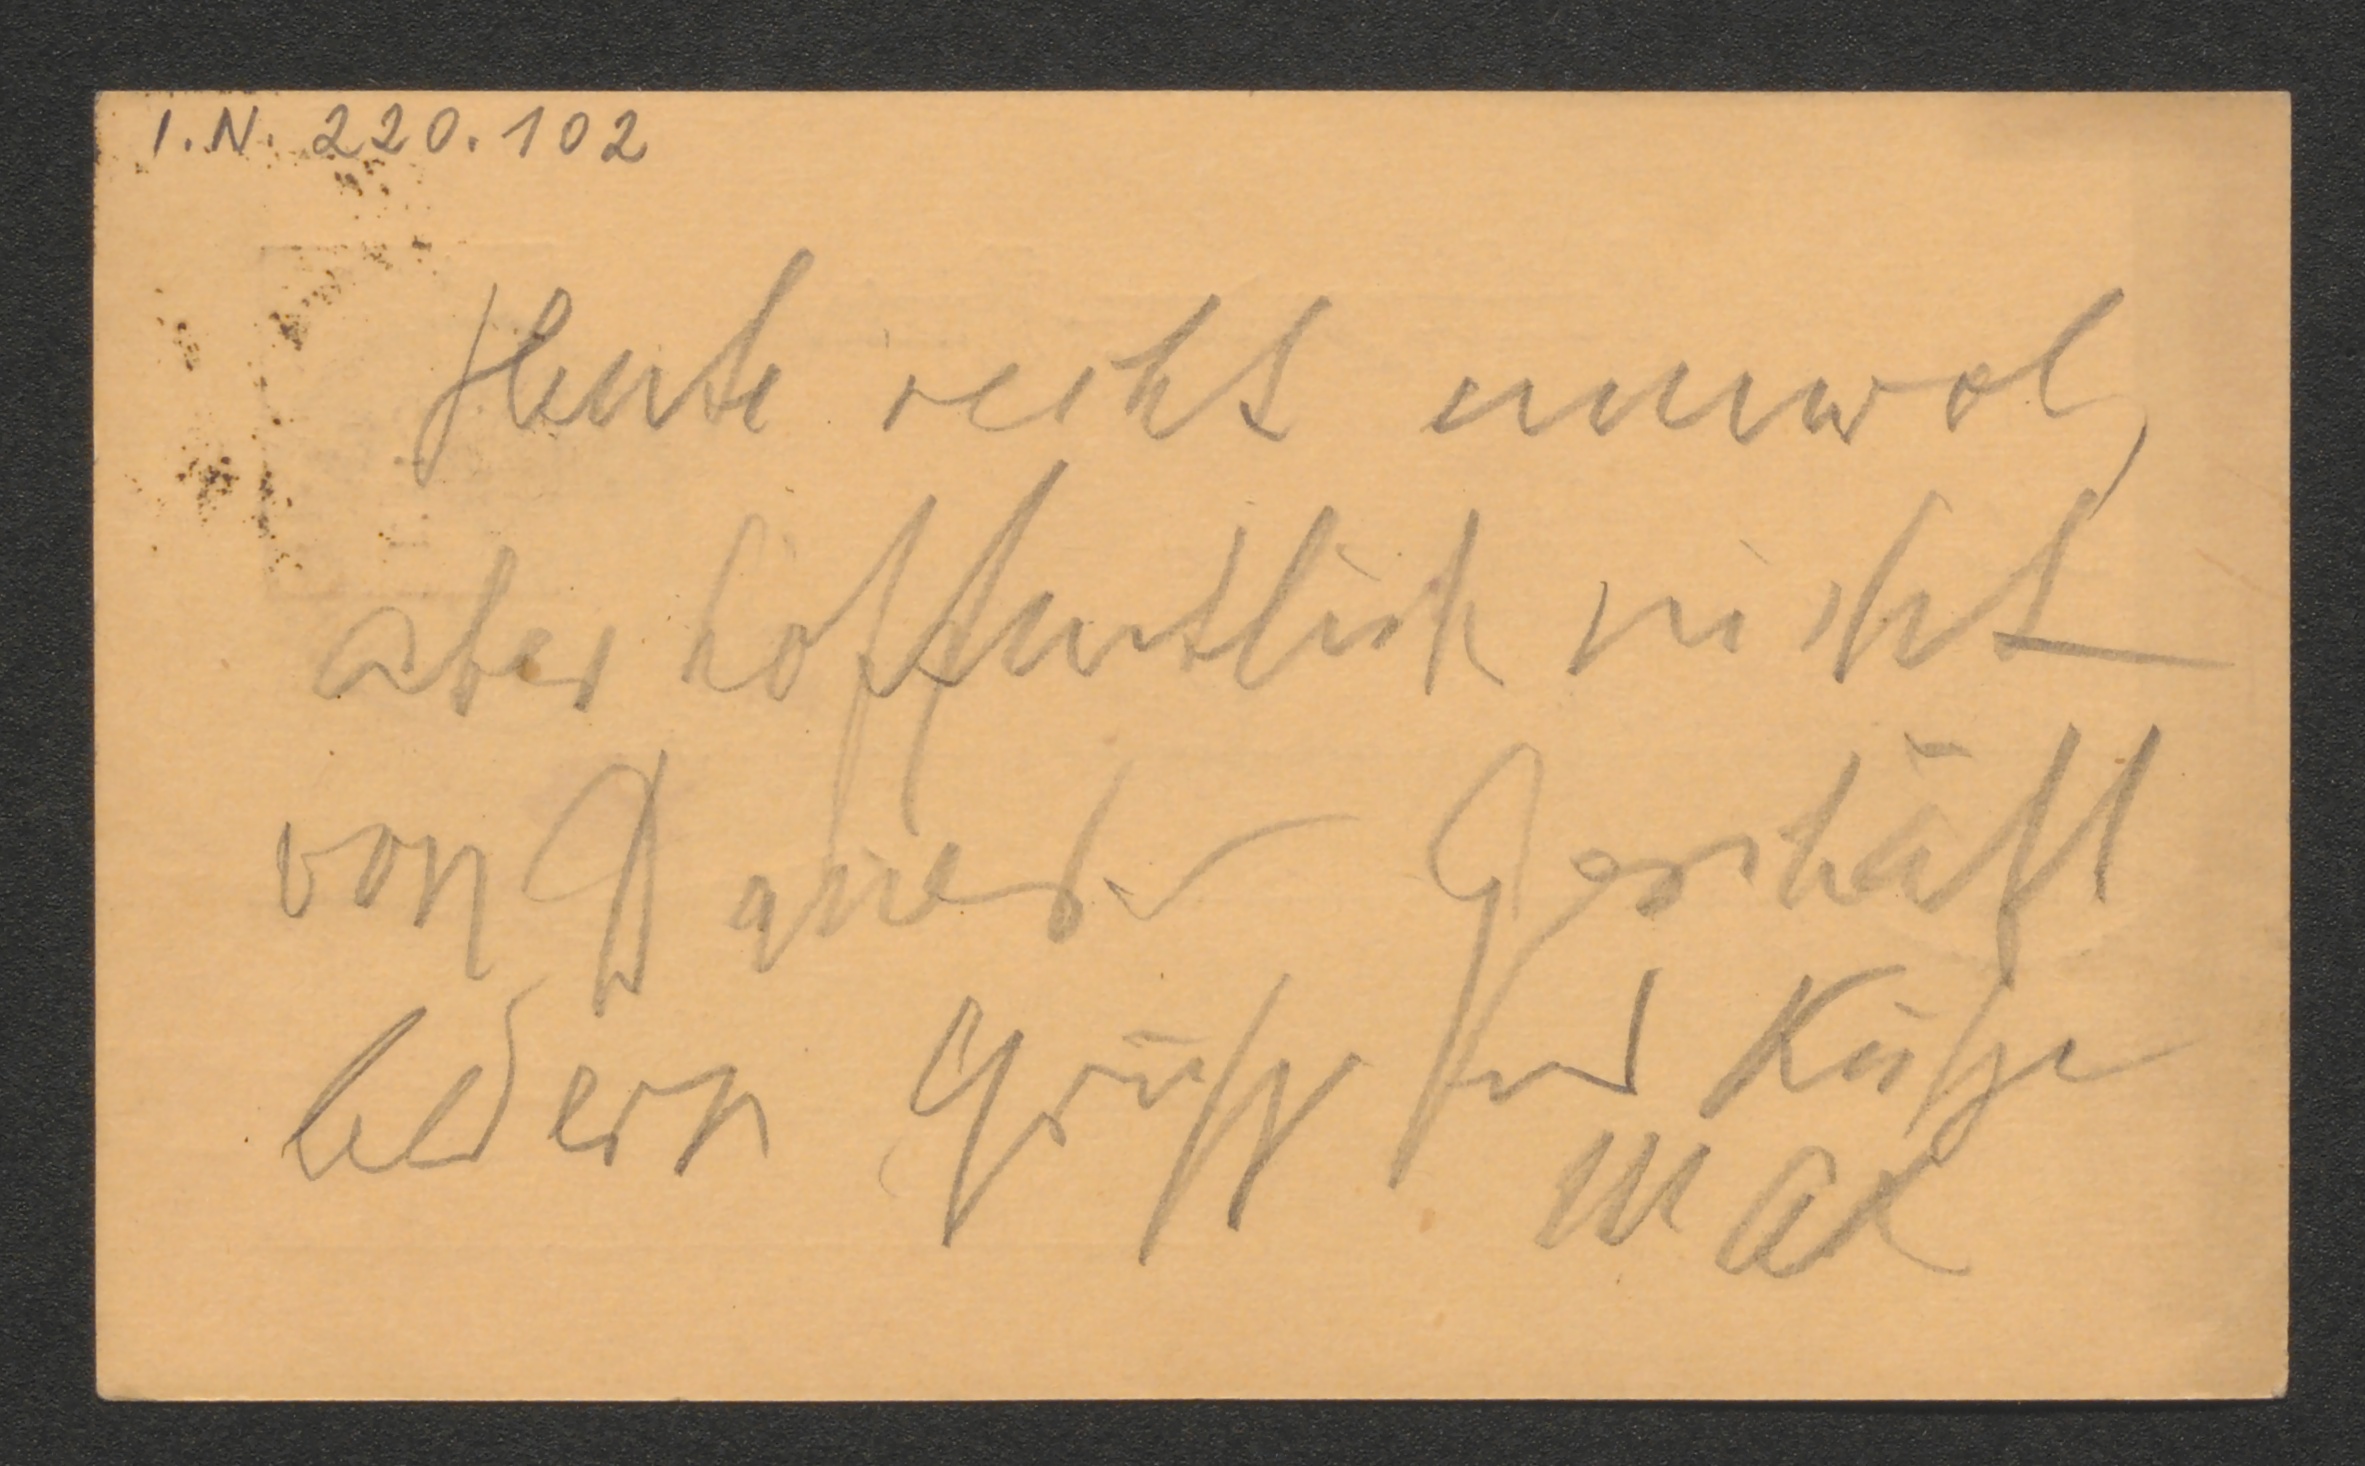 I.N. 220.102
Heute recht unwol,
aber hoffentlich nicht
von Dauer Geschäft
ledern Grüsse und Küsse
Max